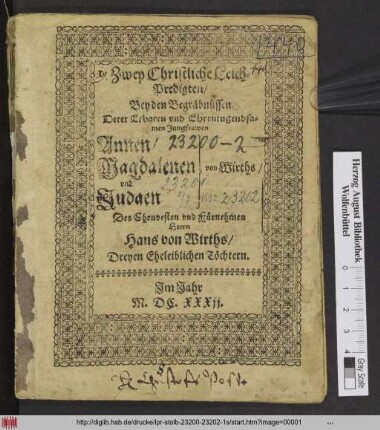 Zwey Christliche Leich-
Predigten/
Bey den Begräbnüssen
Derer Erbaren vnd Ehrentugendsa-
men Jungfrawen
Annen/ 23200-2
Magdalenen von Wirths/
vnd 23201
Judaen 23202
Des Ehrnvesten vnd Fürnehmen
Herrn
Hans von Wirths/
Dreyen Eheleiblichen Töchtern.
Im Jahr
M. DC. XXXij.
Herzog August Bibliothek
Wolfenbüttel
0 1 2 3 4
Gray Scale
http://diglib.hab.de/drucke/lpr-stolb-23200-23202-1s/start.htm?image=00001